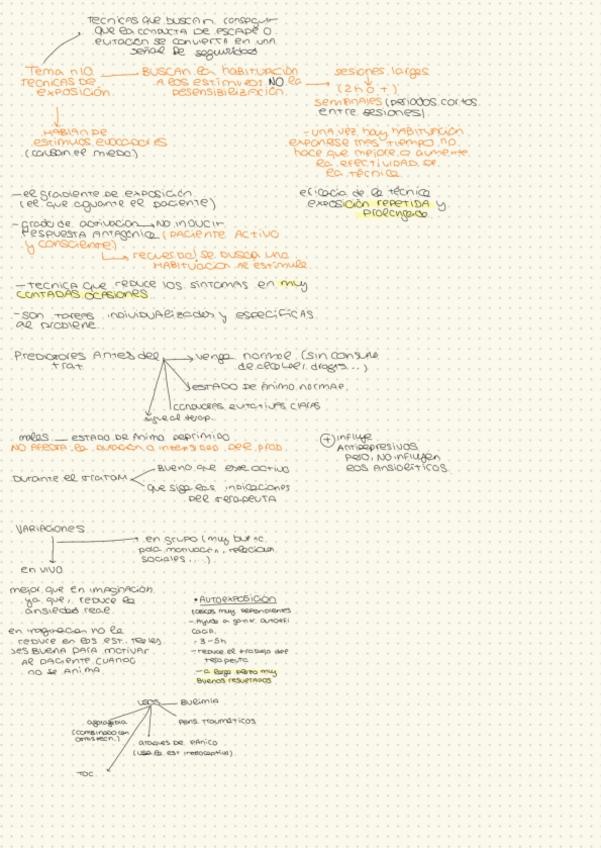 Tecnicas que buscan conseguir
que la conducta de escape o
evitación se convierta en una
señal de seguridad
Tema n10
Tecnicas de
exposición
BUSCAN la habituación
a los estimulos NO la
desensibilización
sesiones largas
(2h o +)
semanales (periodos cortos
entre sesiones)
HABLAN DE
estimulos evocadores
(causan el miedo)
- una vez hay habituación
exponerse más tiempo no
hace que mejore o aumente
la efectividad de
la técnica
- el gradiente de exposición
(el que aguante el paciente)
eficacia de la técnica
exposición repetida y
prolongada
- grado de activación → NO inducir
respuesta antagónica (paciente activo
y consciente)
recuerda! se busca una
habituación al estimulo
- Tecnica que reduce los sintomas en muy
contadas ocasiones
- son tareas individualizadas y especificas
al problema
Predictores Antes del
trat
venga normal (sin consumo
de alcohol, drogas...)
estado de ánimo normal
conductas evitativas claras
malos — estado de animo deprimido
NO AFECTA la duración o intensidad del prob
+ influye
Antidepresivos
pero, NO influyen
los ansioliticos
Durante el tratam
Bueno que esté activo
que siga las indicaciones
del terapeuta
VARIACIONES
en grupo (muy buena
para motivación, relaciones
sociales...)
en vivo
mejor que en imaginación
ya que, reduce la
ansiedad real
en imaginación no la
reduce en los est. reales
es buena para motivar
al paciente cuando
no se anima
• AUTOEXPOSICIÓN
(casos muy dependientes
- Ayuda a ganar autoefi
cacia
- 3-5h
- reduce el trabajo del
terapeuta
- a largo plazo muy
buenos resultados
usos
Bulimia
Agorafobia
(combinado con
otras tecn.)
Pens. traumáticos
Ataques de pánico
(usa la est interoceptiva)
TOC